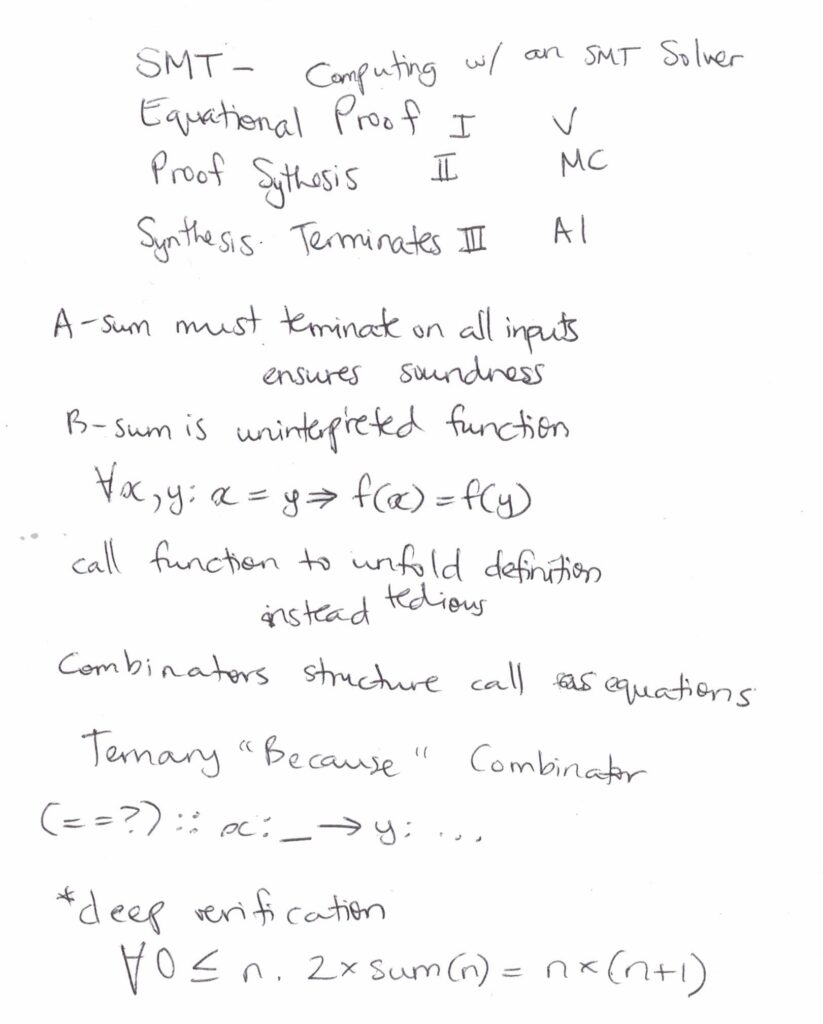 SMT - Computing w/ an SMT Solver
Equational Proof I V
Proof Sythosis II MC
Synthesis. Terminates III AI
A-sum must teminate on all inputs
ensures soundness
B-sum is uninterpreted function
∀x,y: x = y ⇒ f(x) = f(y)
call function to unfold definition
instead tedious
Combinators structure call as equations
Ternary "Because" Combinator
(==?) :: x:_ → y: ...
*deep verification
∀0 ≤ n. 2 × sum(n) = n × (n+1)